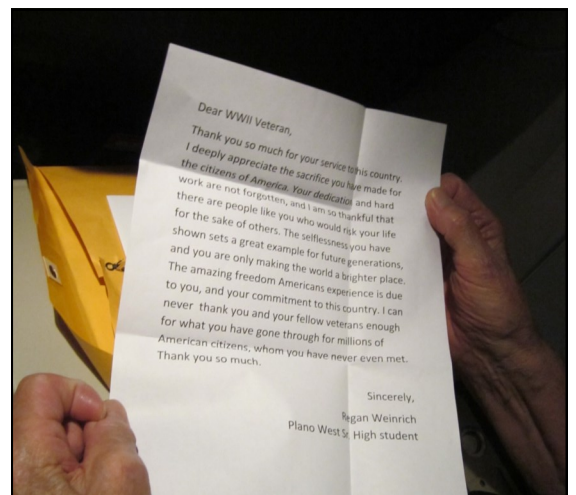 Dear WWII Veteran,
Thank you so much for your service to this country.
I deeply appreciate the sacrifice you have made for
the citizens of America. Your dedication and hard
work are not forgotten, and I am so thankful that
there are people like you who would risk your life
for the sake of others. The selflessness you have
shown sets a great example for future generations,
and you are only making the world a brighter place.
The amazing freedom Americans experience is due
to you, and your commitment to this country. I can
never thank you and your fellow veterans enough
for what you have gone through for millions of
American citizens, whom you have never even met.
Thank you so much.
Sincerely,
Regan Weinrich
Plano West Sr. High student